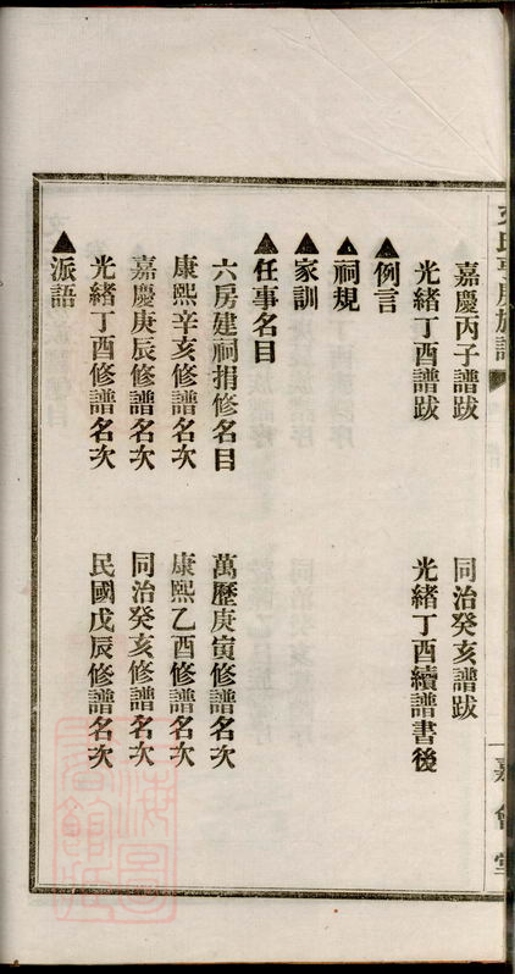 嘉慶丙子譜跋 同治癸亥譜跋
光緒丁酉譜跋 光緒丁酉續譜書後
▲例言
▲祠規
▲家訓
▲任事名目
六房建祠捐修名目 萬歷庚寅修譜名次
康熙辛亥修譜名次 康熙乙酉修譜名次
嘉慶庚辰修譜名次 同治癸亥修譜名次
光緒丁酉修譜名次 民國戊辰修譜名次
▲派語